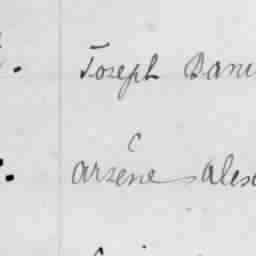 Joseph Dani
arsène alex